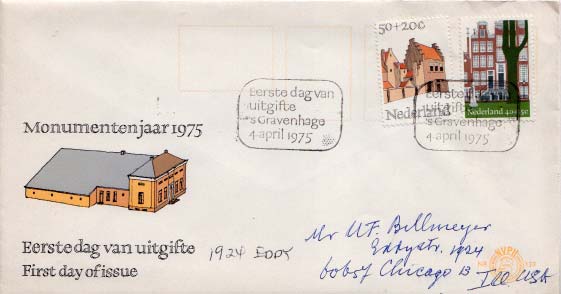 50+20c
Nederland
Nederland 40+15c
Eerste dag van
uitgifte
's-Gravenhage
4 april 1975
Eerste
uitgifte
's-Gravenhage
4 april 1975
Monumentenjaar 1975
Eerste dag van uitgifte
First day of issue
1924 EDDY
Mr W.F. Bellmeyer
Eddystr. 1924
60657 Chicago 13
Ill USA
NVPH